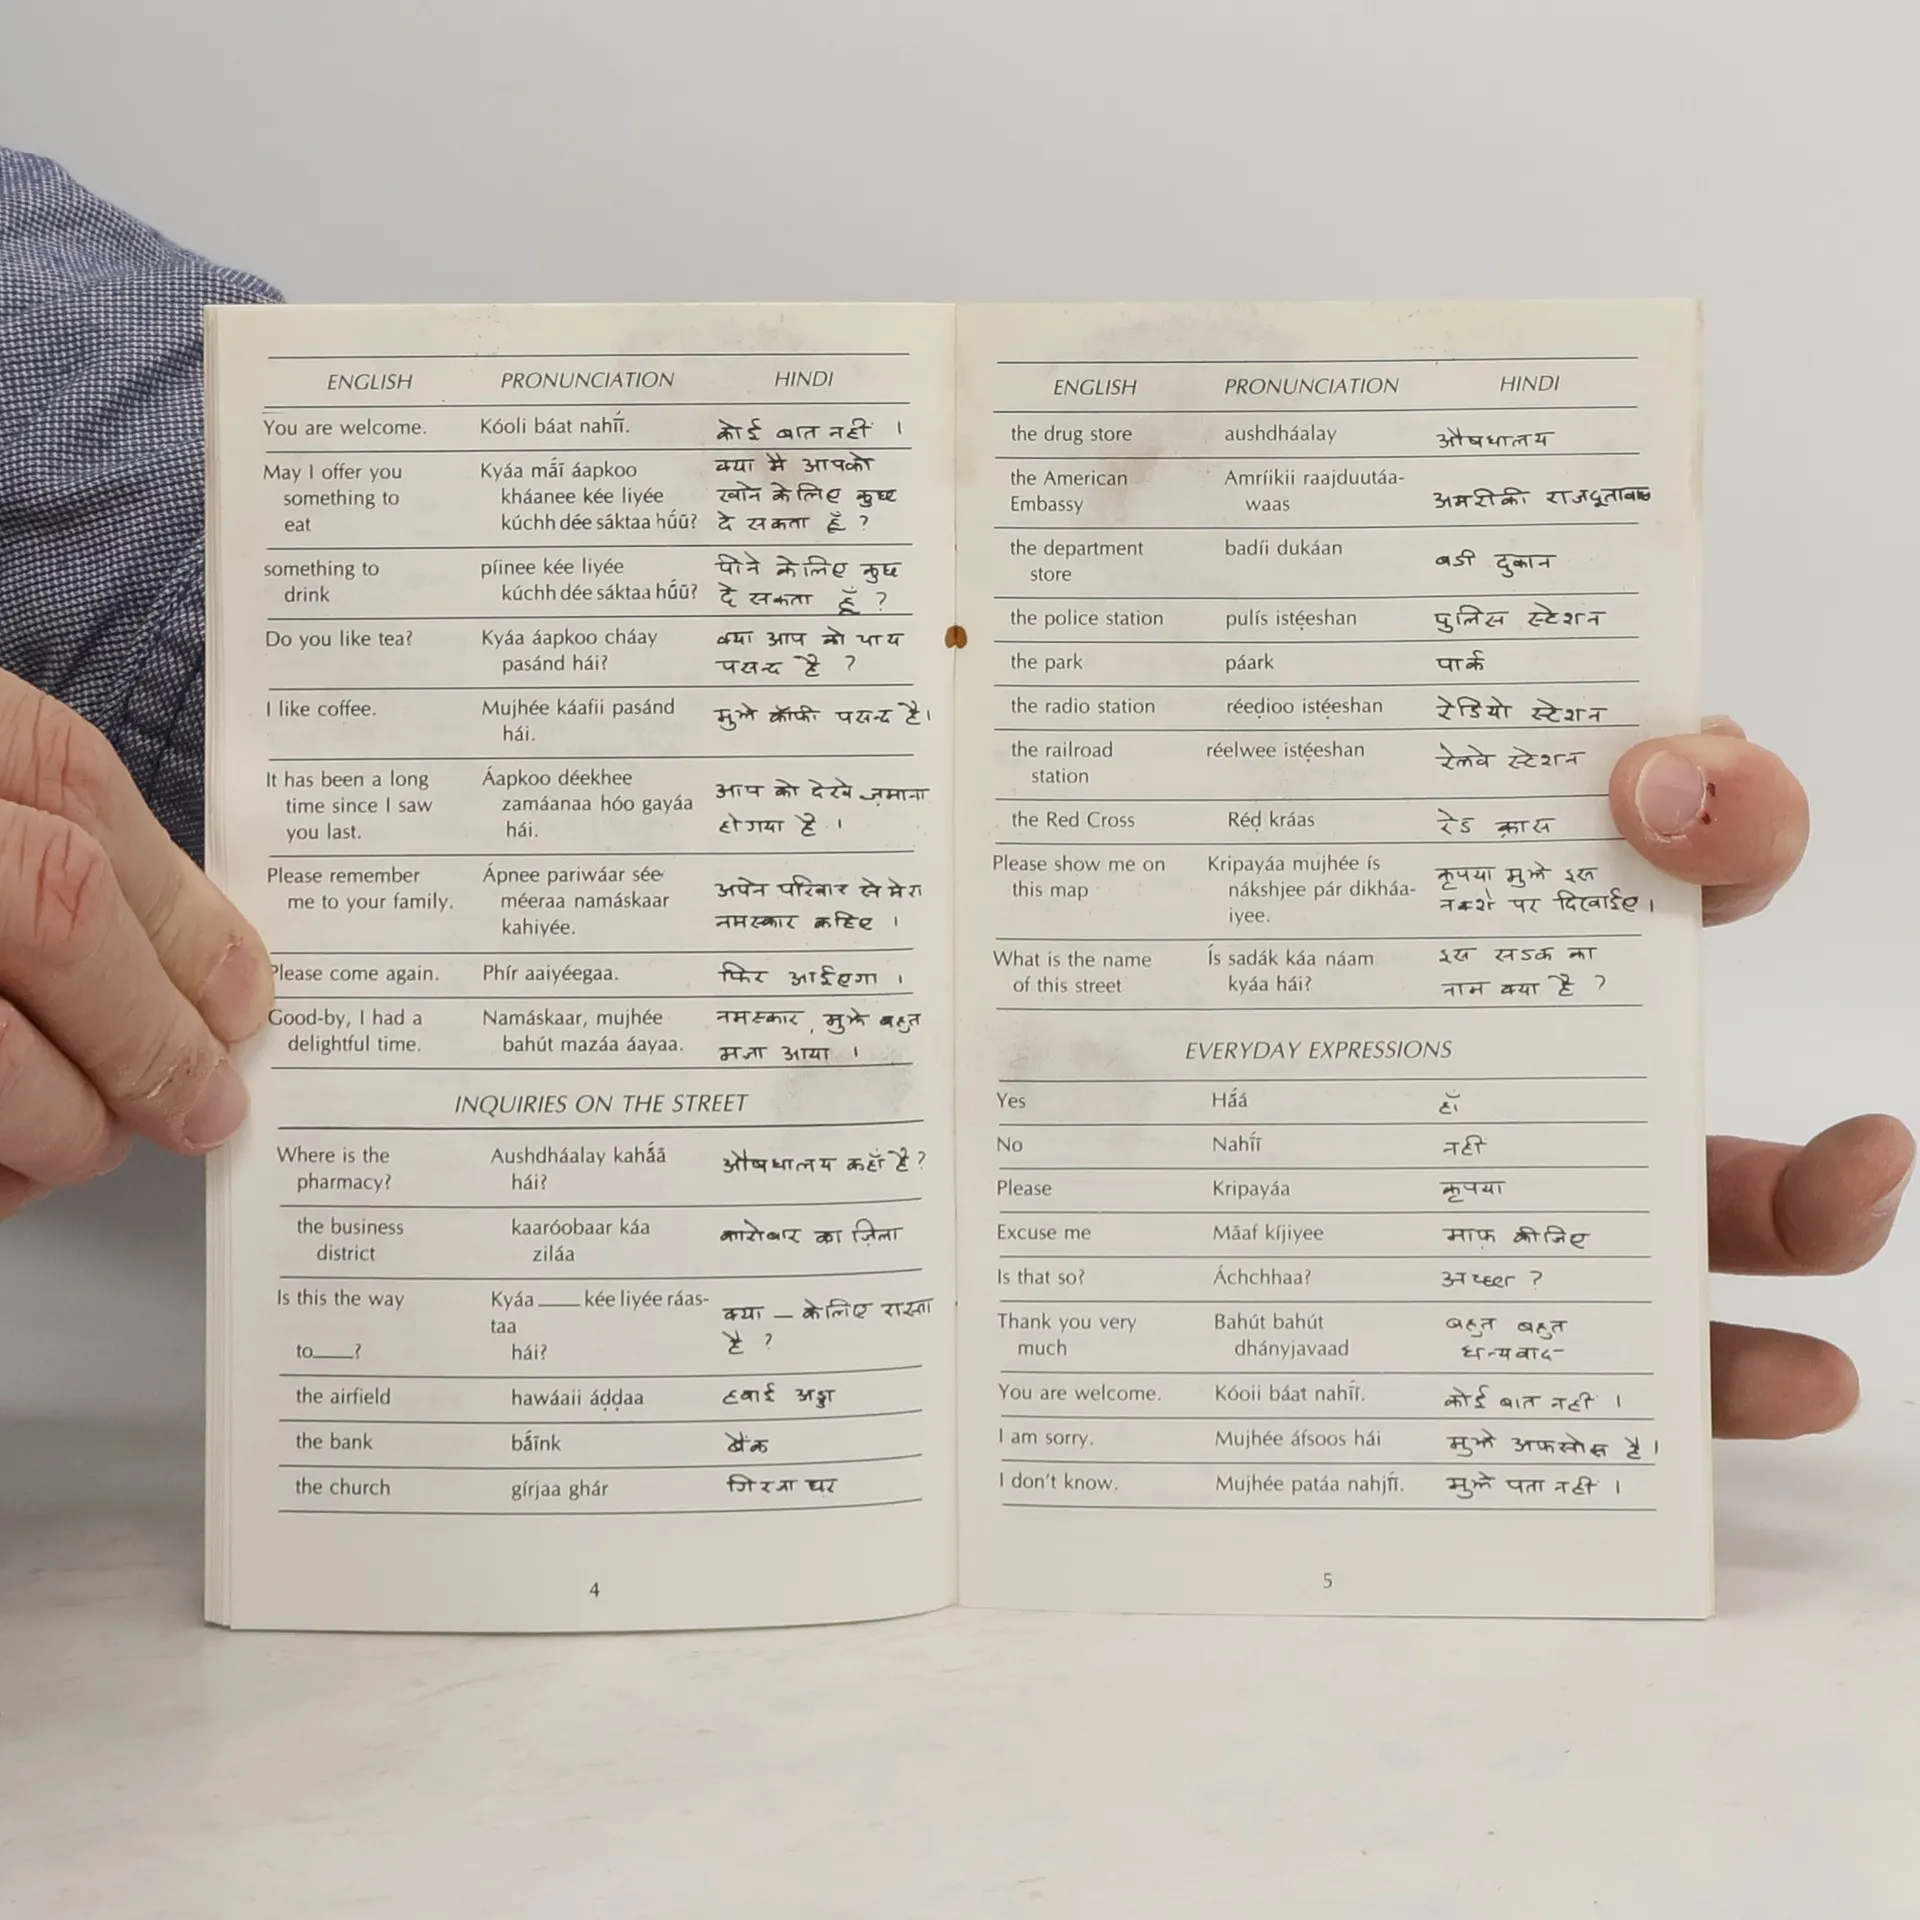 ENGLISH PRONUNCIATION HINDI
You are welcome. Kóoli báat nahíī. कोई बात नहीं ।
May I offer you Kyáa mā́ī áapkoo क्या मै आपको
something to kháanee kée liyée खाने के लिए कुछ
eat kúchh dée sáktaa hū́ū? दे सकता हूँ ?
something to píinee kée liyée पीने के लिए कुछ
drink kúchh dée sáktaa hū́ū? दे सकता हूँ ?
Do you like tea? Kyáa áapkoo cháay क्या आप को चाय
pasánd hái? पसन्द है ?
I like coffee. Mujhée káafii pasánd मुझे कॉफी पसन्द है।
hái.
It has been a long Áapkoo déekhee आप को देखे ज़माना
time since I saw zamáanaa hóo gayáa हो गया है ।
you last. hái.
Please remember Ápnee pariwáar sée अपने परिवार से मेरा
me to your family. méeraa namáskaar नमस्कार कहिए ।
kahiyée.
Please come again. Phír aaiyéegaa. फिर आईएगा ।
Good-by, I had a Namáskaar, mujhée नमस्कार, मुझे बहुत
delightful time. bahút mazáa áayaa. मजा आया ।
INQUIRIES ON THE STREET
Where is the Aushdháalay kahā́ā औषधालय कहाँ है ?
pharmacy? hái?
the business kaaróobaar káa कारोबार का ज़िला
district ziláa
Is this the way Kyáa ____ kée liyée ráas- क्या — के लिए रास्ता
taa है ?
to____? hái?
the airfield hawáaii áḍḍaa हवाई अड्डा
the bank bā́īnk बैंक
the church gírjaa ghár गिरजा घर
4
ENGLISH PRONUNCIATION HINDI
the drug store aushdháalay औषधालय
the American Amríikii raajduutáa- अमरीकी राजदूतावास
Embassy waas
the department badíi dukáan बडी दुकान
store
the police station pulís istẹ́eshan पुलिस स्टेशन
the park páark पार्क
the radio station réeḍioo istẹ́eshan रेडियो स्टेशन
the railroad réelwee istẹ́eshan रेलवे स्टेशन
station
the Red Cross Réḍ kráas रेड क्रास
Please show me on Kripayáa mujhée ís कृपया मुझे इस
this map nákshjee pár dikháa- नक्शे पर दिखाईए ।
iyee.
What is the name Ís sadák káa náam इस सडक का
of this street kyáa hái? नाम क्या है ?
EVERYDAY EXPRESSIONS
Yes Hā́á हाँ
No Nahíī नहीं
Please Kripayáa कृपया
Excuse me Māaf kíjiyee माफ़ कीजिए
Is that so? Áchchhaa? अच्छा ?
Thank you very Bahút bahút बहुत बहुत
much dhányjavaad धन्यवाद
You are welcome. Kóoii báat nahíī. कोई बात नहीं ।
I am sorry. Mujhée áfsoos hái मुझे अफसोस है ।
I don't know. Mujhée patáa nahjíī. मुझे पता नहीं ।
5